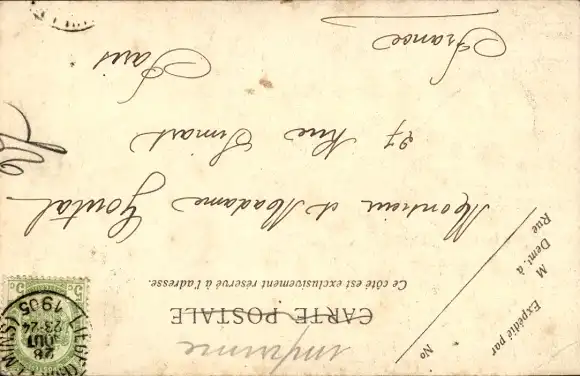 imprimé
CARTE POSTALE
Ce côté est exclusivement réservé à l'adresse.
No
Expédié par
M
Demt. à
Rue
Monsieur et Madame Goutal
27 Rue Simart
Paris
France
5c 5c
28
OUT
23-24
1905